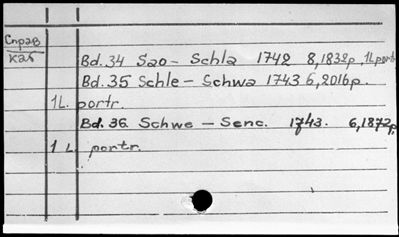 Справ
каб
Bd. 34 Sao - Schla 1742 8, 1832p, 1L portr
Bd. 35 Schle - Schwa 1743 6, 2016p.
1L. portr.
Bd. 36. Schwe - Senc. 1743. 6, 1872p,
1 L. portr.